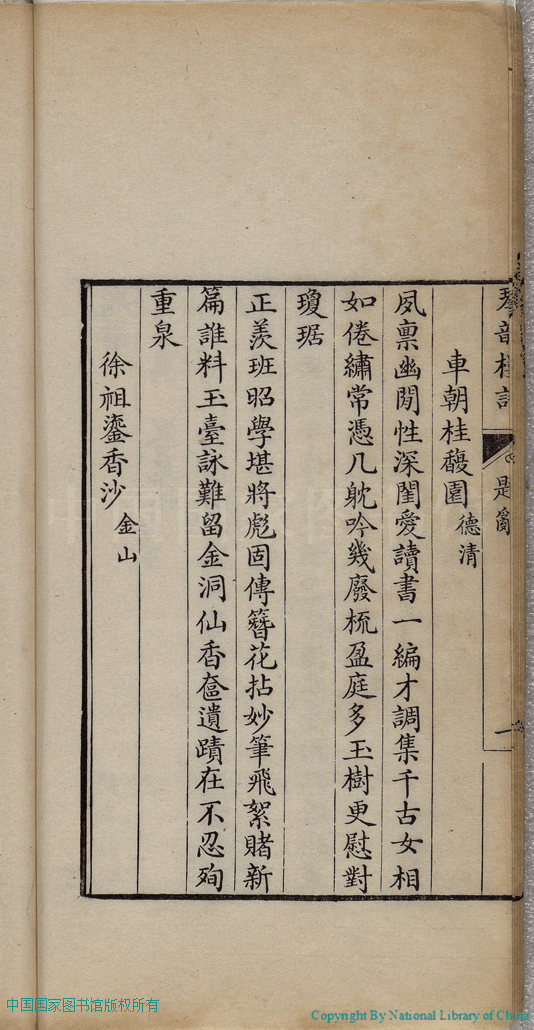 車朝桂馥園德清
夙稟幽閒性深閨愛讀書一編才調集千古女相
如倦繡常憑几躭吟幾廢梳盈庭多玉樹更慰對
瓊琚
正羨班昭學堪將彪固傳簪花拈妙筆飛絮賭新
篇誰料玉臺詠難留金洞仙香奩遺蹟在不忍殉
重泉
徐祖鎏香沙金山
中国国家图书馆版权所有
Copyright By National Library of China